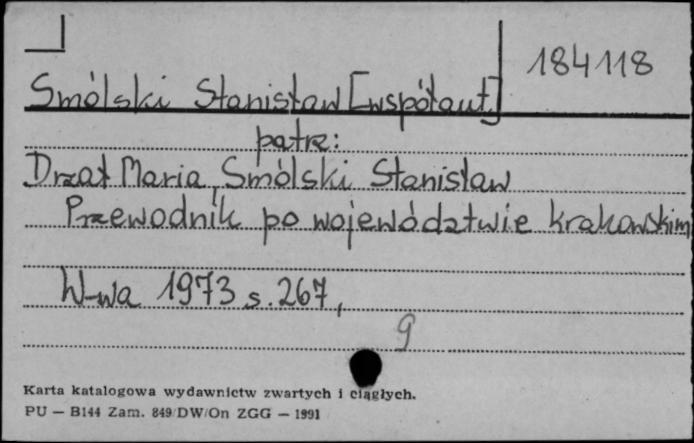 184118
Smólski Stanisław [współaut.]
patrz:
Drzał Maria, Smólski Stanisław
Przewodnik po województwie krakowskim
W-wa 1973 s. 267,
g
Karta katalogowa wydawnictw zwartych i ciągłych.
PU — B144 Zam. 849/DW/On ZGG — 1991